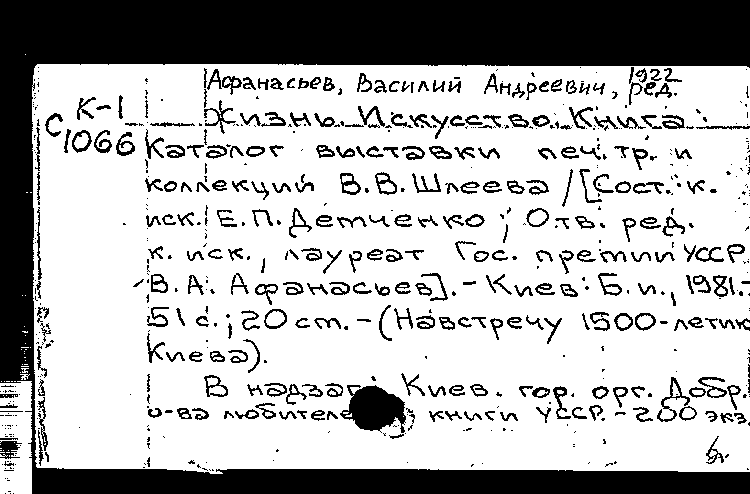 Афанасьев, Василий Андреевич, 1922
ред.
К-1
С 1066
Жизнь. Искусство. Книга:
Каталог выставки печ. тр. и
коллекций В.В. Шлеева / [Сост.: к.
иск. Е.П. Демченко; Отв. ред.
к. иск., лауреат Гос. премии УССР
В.А. Афанасьев]. - Киев: Б.и., 1981.-
51 с.; 20 см. - (Навстречу 1500-летию
Киева).
В надзаг.: Киев. гор. орг. Добр.
о-ва любителе книги УССР. - 200 экз.